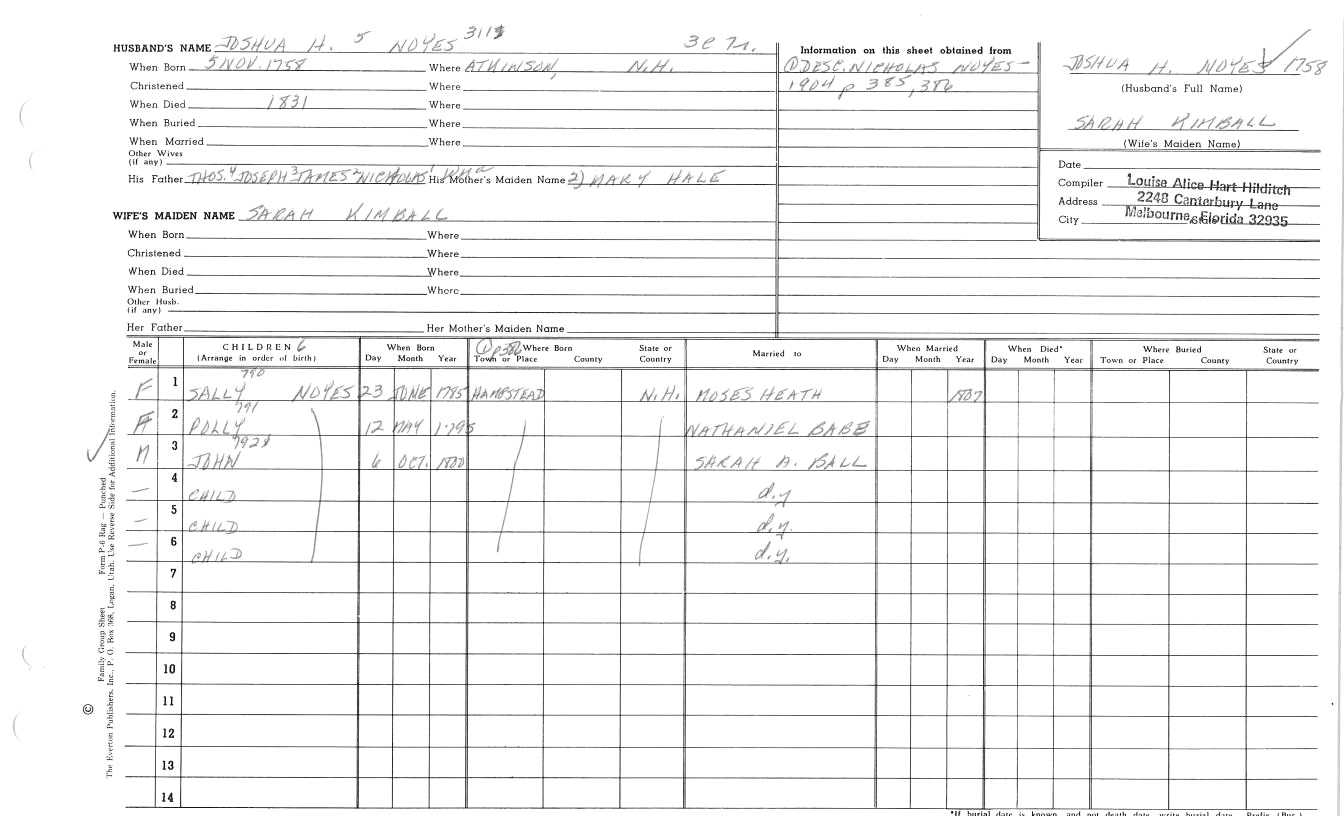 HUSBAND'S NAME JOSHUA H. 5 NOYES 311 3 C 71.
When Born 5 NOV. 1758 Where ATKINSON, N.H.
Christened Where
When Died 1831 Where
When Buried Where
When Married Where
Other Wives
(if any)
His Father THOS.4 JOSEPH3 JAMES2 NICHOLAS1 His Mother's Maiden Name 2) MARY HALE
WIFE'S MAIDEN NAME SARAH KIMBALL
When Born Where
Christened Where
When Died Where
When Buried Where
Other Husb.
(if any)
Her Father Her Mother's Maiden Name
Information on this sheet obtained from
① DESC. NICHOLAS NOYES -
1904 p 385, 386
JOSHUA H. NOYES 1758
(Husband's Full Name)
SARAH KIMBALL
(Wife's Maiden Name)
Date
Compiler Louise Alice Hart Hilditch
Address 2248 Canterbury Lane
City Melbourne, Florida 32935
State
Male or Female CHILDREN 6 (Arrange in order of birth) When Born Day Month Year ① p386 Where Born Town or Place County State or Country Married to When Married Day Month Year When Died* Day Month Year Where Buried Town or Place County State or Country
790
F 1 SALLY NOYES 23 JUNE 1785 HAMPSTEAD N.H. MOSES HEATH 1807
791
F 2 POLLY 12 MAY 1795 NATHANIEL BABB
792
M 3 JOHN 6 OCT. 1800 SARAH A. BALL
— 4 CHILD d.y
— 5 CHILD d.y.
— 6 CHILD d.y.
7
8
9
10
11
12
13
14
*If burial date is known and not death date, write burial date. Prefix (Bur.)
© Family Group Sheet Form P-6 Rag — Punched
The Everton Publishers, Inc., P. O. Box 368, Logan, Utah. Use Reverse Side for Additional Information.